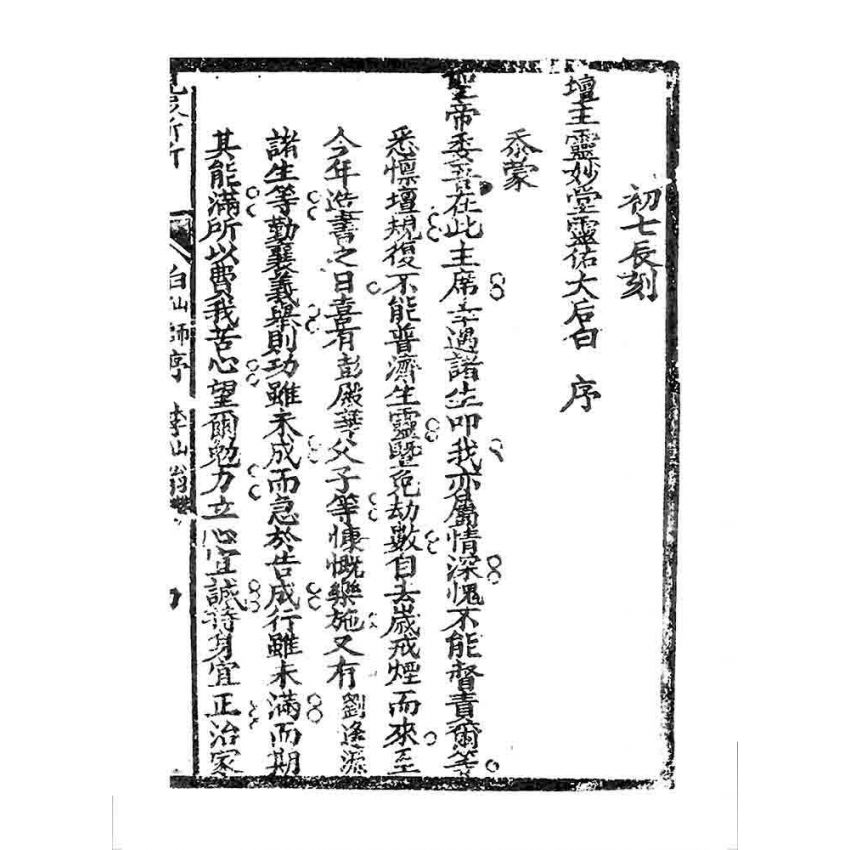 初七辰刻
壇主靈妙堂靈佑大后白　序
忝蒙
聖帝委吾在此主席幸遇諸生叩我亦屬情深愧不能督責爾等
悉懔壇規復不能普濟生靈暨免劫數自去歲戒煙而來至
今年造書之日喜有彭殿華父子等慷慨樂施又有劉逢源
諸生等勤襄義舉則功雖未成而急於告成行雖未滿而期
其能滿所以費我苦心望爾勉力立心宜誠持身宜正治家
白仙師序　李仙翁